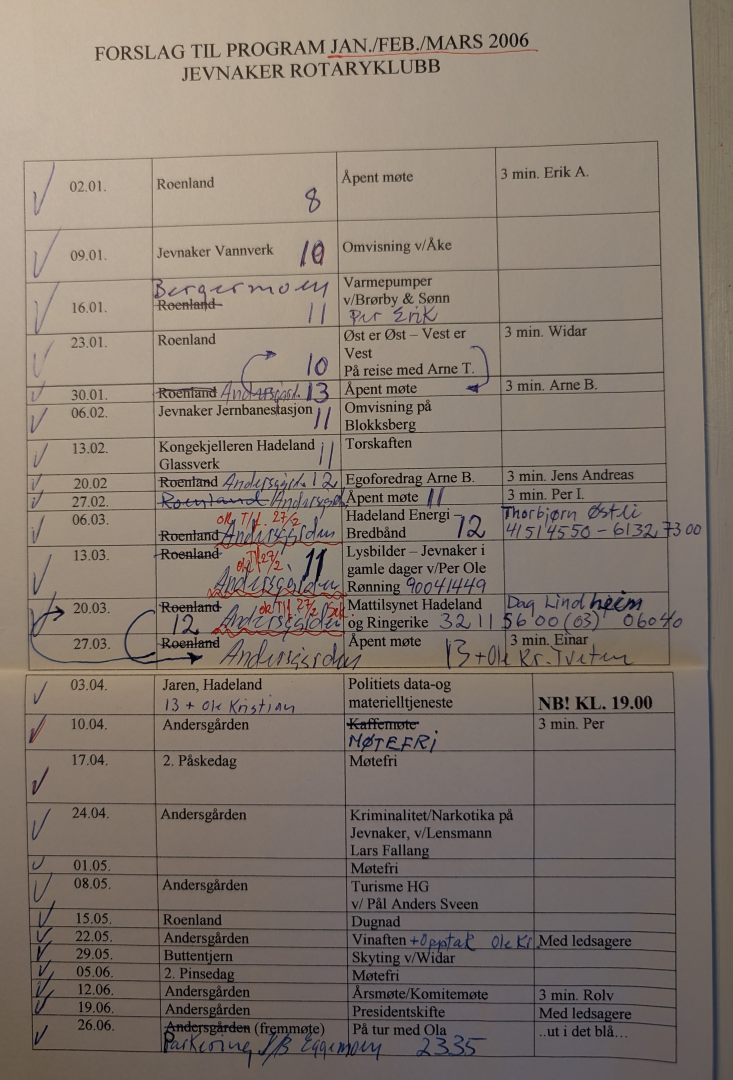 FORSLAG TIL PROGRAM JAN./FEB./MARS 2006
JEVNAKER ROTARYKLUBB
02.01. Roenland 8 Åpent møte 3 min. Erik A.
09.01. Jevnaker Vannverk 10 Omvisning v/Åke
Bergermoen Varmepumper
16.01. Roenland 11 v/Brørby & Sønn
Per Erik
23.01. Roenland Øst er Øst – Vest er 3 min. Widar
Vest
10 På reise med Arne T.
30.01. Roenland Andersgård. 13 Åpent møte 3 min. Arne B.
06.02. Jevnaker Jernbanestasjon 11 Omvisning på
Blokksberg
13.02. Kongekjelleren Hadeland 11 Torskaften
Glassverk
20.02 Roenland Andersgården 12 Egoforedrag Arne B. 3 min. Jens Andreas
27.02. Roenland Andersgården Åpent møte 11 3 min. Per I.
06.03. ok Tlf. 27/2 Hadeland Energi – 12 Thorbjørn Østli
Roenland Andersgården Bredbånd 41514550 – 61327300
13.03. Roenland ok Tlf 27/2 11 Lysbilder – Jevnaker i
Andersgården gamle dager v/Per Ole
Rønning 90041449
20.03. Roenland ok Tlf. 27/2 Mattilsynet Hadeland Dag Lindheim
12 Andersgården og Ringerike 32115600 (03) 06040
27.03. Roenland Andersgården Åpent møte 3 min. Einar
13 + Ole Kr. Tveten
03.04. Jaren, Hadeland Politiets data-og
13 + Ole Kristian materielltjeneste NB! KL. 19.00
10.04. Andersgården Kaffemøte 3 min. Per
MØTEFRI
17.04. 2. Påskedag Møtefri
24.04. Andersgården Kriminalitet/Narkotika på
Jevnaker, v/Lensmann
Lars Fallang
01.05. Møtefri
08.05. Andersgården Turisme HG
v/ Pål Anders Sveen
15.05. Roenland Dugnad
22.05. Andersgården Vinaften + Opptak Ole Kr. Med ledsagere
29.05. Buttentjern Skyting v/Widar
05.06. 2. Pinsedag Møtefri
12.06. Andersgården Årsmøte/Komitemøte 3 min. Rolv
19.06. Andersgården Presidentskifte Med ledsagere
26.06. Andersgården (fremmøte) På tur med Ola ..ut i det blå…
Parkering Eggemoen 2335